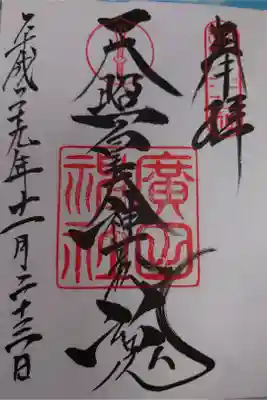 奉拝
天照皇大神荒魂
廣田神社
平成二十九年十一月二十三日